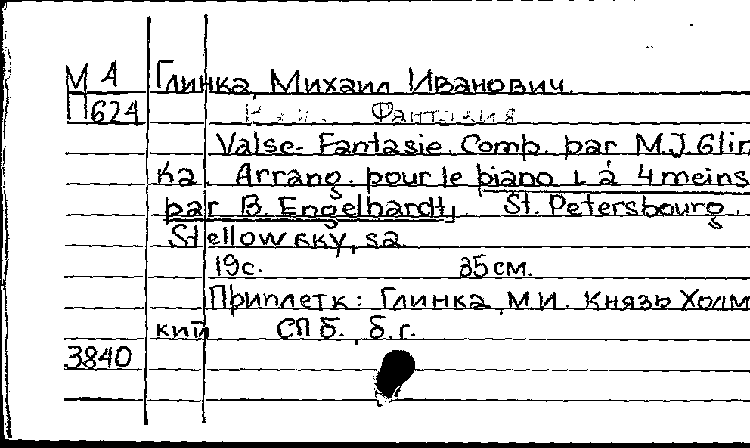 МА Глинка, Михаил Иванович
П624 Фантазия
Valse-Fantasie. Comp. par M.J.Glin
ka. Arrang. pour le piano à 4 meins
par B. Engelhardt, St. Petersbourg.
Stellowsky, sa
19c. 35см.
Приплетк: Глинка, М.И. Князь Холм
кий СПб., б.г.
3840